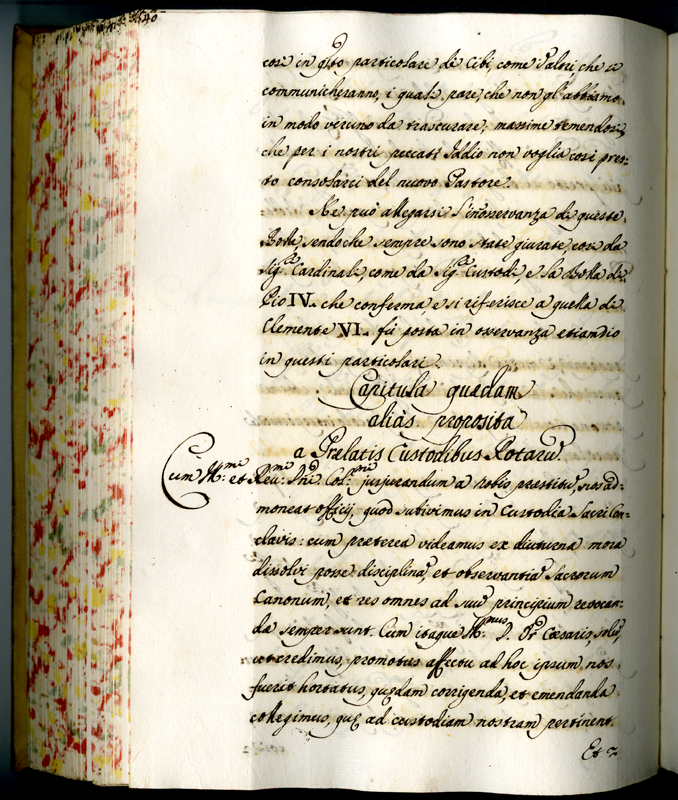 540
così in qsto particolare de Cibi, come d'altri, che si
communicheranno, i quali pare, che non gl'abbiamo
in modo veruno da trascurare; massime temendosi,
che per i nostri peccati Iddio non voglia così pres-
to consolarci del nuovo Pastore.
Ne può allegarsi l'inosservanza di queste
Bolle, sendoche sempre sono state giurate, così da
Sig.ri Cardinali, come da Sig.ri Custodi, e la Bolla di
Pio IV. che conferma, e si riferisce a quella di
Clemente VI. fù posta in osservanza etiandio
in questi particolari.
Capitula quædam
aliàs proposita
a Prælatis Custodibus Rotarũ.
Cum Ill.mi et Reu.mi Dñi Col.mi jusjurandum a nobis præstitũ, nos ad-
moneat officij, quod subivimus in Custodia Sacri Con-
clavis: cum præterea videamus ex diuturna mora
dissolvi posse disciplinã, et observantiã Sacrorum
Canonum, et res omnes ad suũ principium revocan-
dæ semper sunt. Cum itaque Ill.mus D. Or. Cæsaris, solũ,
ut credimus, promotus affectu ad hoc ipsum nos
fuerit hortatus, quædam corrigenda, et emendanda
collegimus, quæ ad custodiam nostram pertinent.
Et